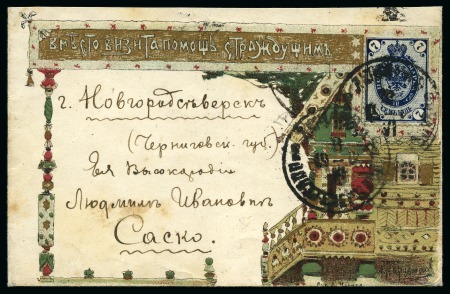 вмѣсто визита помощь страждущимъ
7
7
г. Новгородсѣверскъ
(Черниговск. губ.)
Ея Высокородію
Людмилѣ Ивановнѣ
Саско.